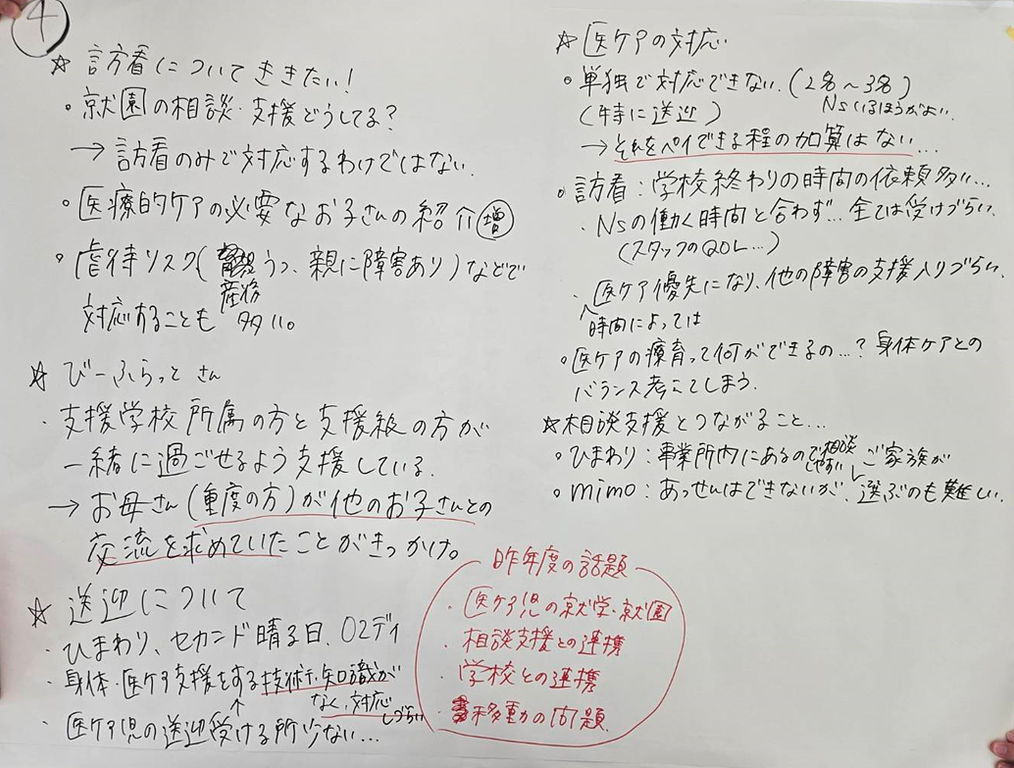 4
☆ 訪看についてききたい!
・就園の相談・支援どうしてる?
→ 訪看のみで対応するわけではない。
・医療的ケアの必要なお子さんの紹介 増
・虐待リスク(産後うつ、親に障害あり)などで
対応することも多い。
☆ びーふらっと さん
・支援学校所属の方と支援級の方が
一緒に過ごせるよう支援している。
→ お母さん(重度の方)が他のお子さんとの
交流を求めていたことがきっかけ。
☆ 送迎について
・ひまわり、セカンド晴る日、O2デイ
・身体・医ケア支援をする技術・知識が
なく、対応しづらい
↑
・医ケア児の送迎受ける所少ない…
☆医ケアの対応
・単独で対応できない。(2名〜3名)
(特に送迎) Nsいるほうがよい。
→ それをペイできる程の加算はない…
・訪看:学校終わりの時間の依頼多い…
・Nsの働く時間と合わず…全ては受けづらい。
(スタッフのQOL…)
・医ケア優先になり、他の障害の支援入りづらい。
時間によっては
・医ケアの療育って何ができるの…?身体ケアとの
バランス考えてしまう。
☆相談支援とつながること…
・ひまわり:事業所内にあるので相談しやすい
・mimo:あっせんはできないが、ご家族が選ぶのも難しい。
昨年度の話題
・医ケア児の就学・就園
・相談支援との連携
・学校との連携
・移動の問題